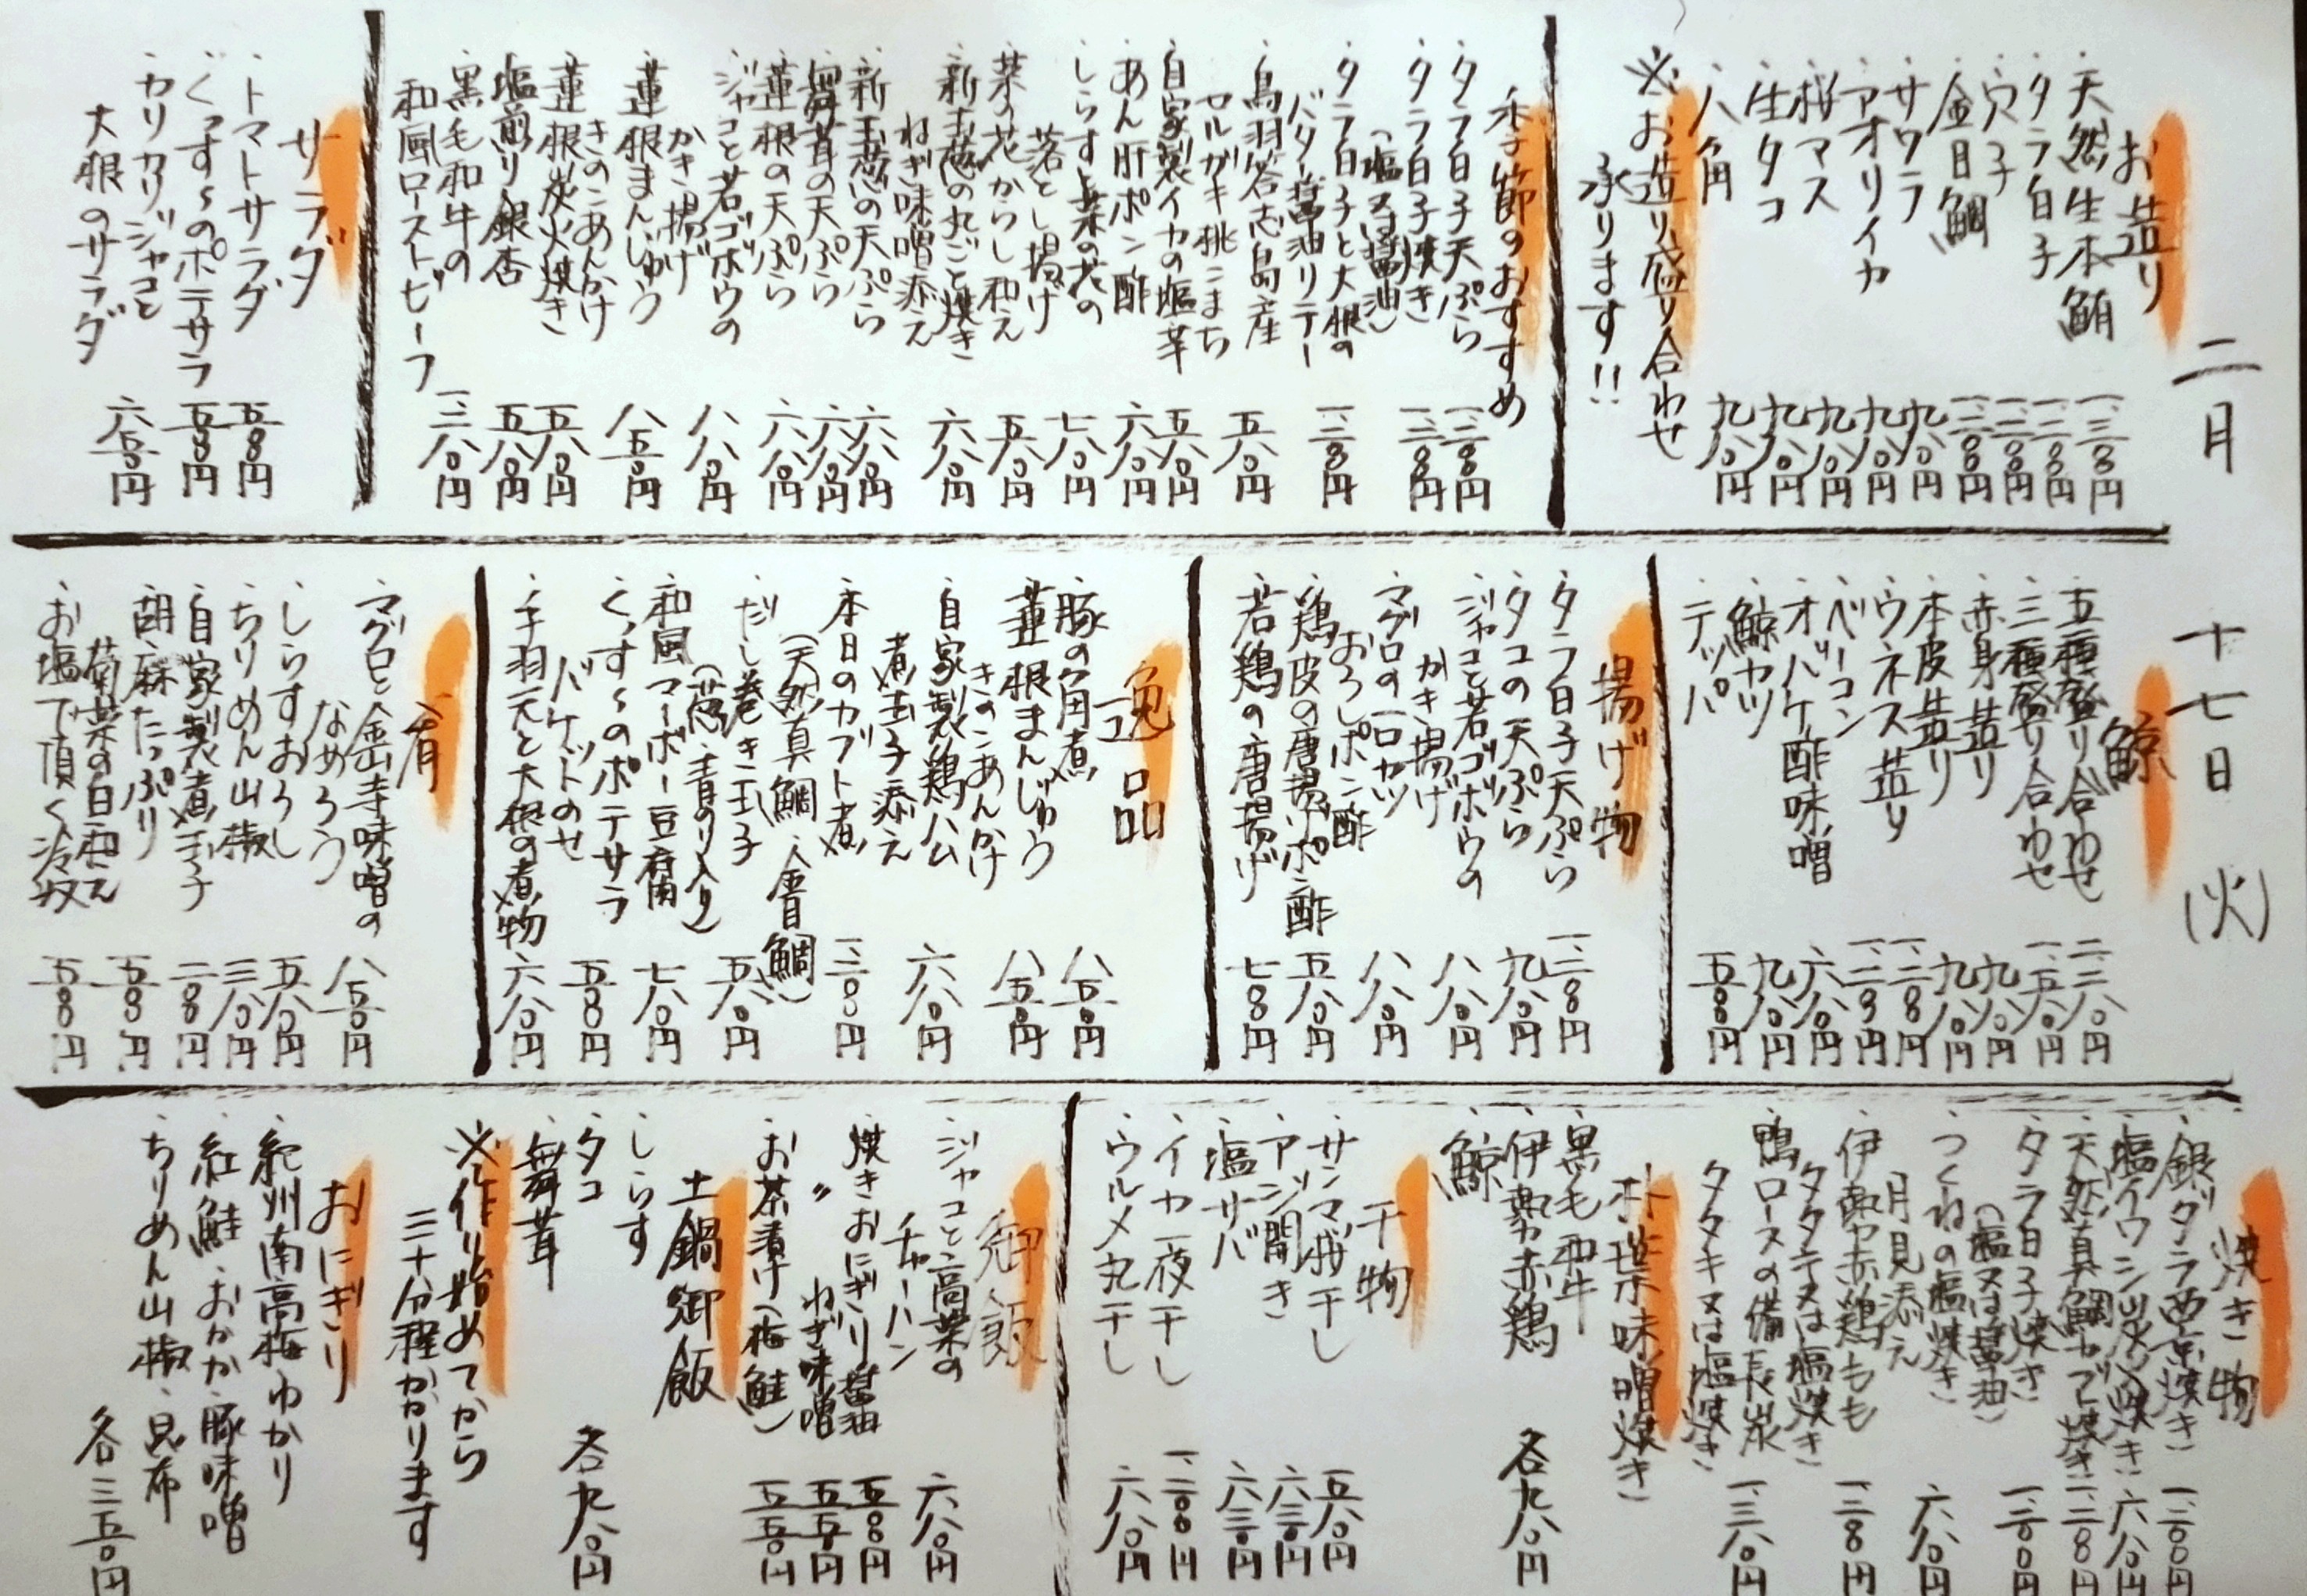 二月 十七日 (火)
お造り
・天然生本鮪
・タラ白子
・穴子
・金目鯛
・サワラ
・アオリイカ
・桜マス
・生タコ 九八〇円
・八角 九八〇円
※お造り盛り合わせ
承ります!!
季節のおすすめ
・タラ白子天ぷら
・タラ白子焼き
(塩又は醤油)
・タラ白子と大根の
バター醤油リテー
・鳥羽答志島産
セルガキ桃こまち 五八〇円
・自家製イカの塩辛 五八〇円
・あん肝ポン酢 六八〇円
・しらすと菜の花の
落とし揚げ 七八〇円
・菜の花からし和え 五八〇円
・新玉葱の丸ごと焼き
ねぎ味噌添え 六八〇円
・新玉葱の天ぷら 六八〇円
・舞茸の天ぷら 六八〇円
・蓮根の天ぷら 六八〇円
・ジャコと若ゴボウの
かき揚げ 八八〇円
・蓮根まんじゅう
きのこあんかけ 八五〇円
・蓮根炭火焼き 五八〇円
・塩煎り銀杏 五八〇円
・黒毛和牛の
和風ローストビーフ 一、三八〇円
サラダ
・トマトサラダ 五五〇円
・くっすぅのポテサラ 五五〇円
・カリカリジャコと
大根のサラダ 六五〇円
鯨
・五種盛り合わせ
・三種盛り合わせ 一、五八〇円
・赤身造り 九八〇円
・本皮造り 九八〇円
・ウネス造り
・ベーコン
・オバケ酢味噌 六八〇円
・鯨カツ 九八〇円
・テッパ 五五〇円
揚げ物
・タラ白子天ぷら
・タコの天ぷら 九八〇円
・ジャコと若ゴボウの
かき揚げ 八八〇円
・マグロの一口カツ
おろしポン酢 八八〇円
・鶏皮の唐揚ポン酢 五八〇円
・若鶏の唐揚げ
逸品
・豚の角煮 八五〇円
・蓮根まんじゅう
きのこあんかけ 八五〇円
・自家製鶏ハム
煮玉子添え 六八〇円
・本日のカブト煮
(天然真鯛、金目鯛)
・だし巻き玉子
(葱、青のり入り) 五八〇円
・和風マーボー豆腐 七八〇円
・くっすぅのポテサラ
バケットのせ
・手羽元と大根の煮物 六八〇円
肴
・マグロと金山寺味噌の
なめろう 八五〇円
・しらすおろし 五八〇円
・ちりめん山椒 三八〇円
・自家製煮玉子
・胡麻たっぷり
菊菜の白和え
・お塩で頂く冷奴
焼き物
・銀ダラ西京焼き
・塩イワシ炭火焼き 六八〇円
・天然真鯛カブト焼き
・タラ白子焼き
(塩又は醤油)
・つくねの塩焼き
月見添え 六八〇円
・伊勢赤鶏もも
タタキ又は塩焼き
・鴨ロースの備長炭
タタキ又は塩焼き 一、三八〇円
朴葉味噌焼き
・黒毛和牛
・伊勢赤鶏
・鯨
各九八〇円
干物
・サンマ桜干し 五八〇円
・アジ開き 六三〇円
・塩サバ 六三〇円
・イカ一夜干し
・ウルメ丸干し 六八〇円
御飯
・ジャコと高菜の
チャーハン 六八〇円
・焼きおにぎり醤油
・〃 ねぎ味噌 五五〇円
・お茶漬け(梅、鮭) 五五〇円
土鍋御飯
・しらす
・タコ
・舞茸
各九八〇円
※作り始めてから
三十分程かかります
おにぎり
・紀州南高梅・ゆかり
・紅鮭・おかか・豚味噌
・ちりめん山椒・昆布
各三五〇円